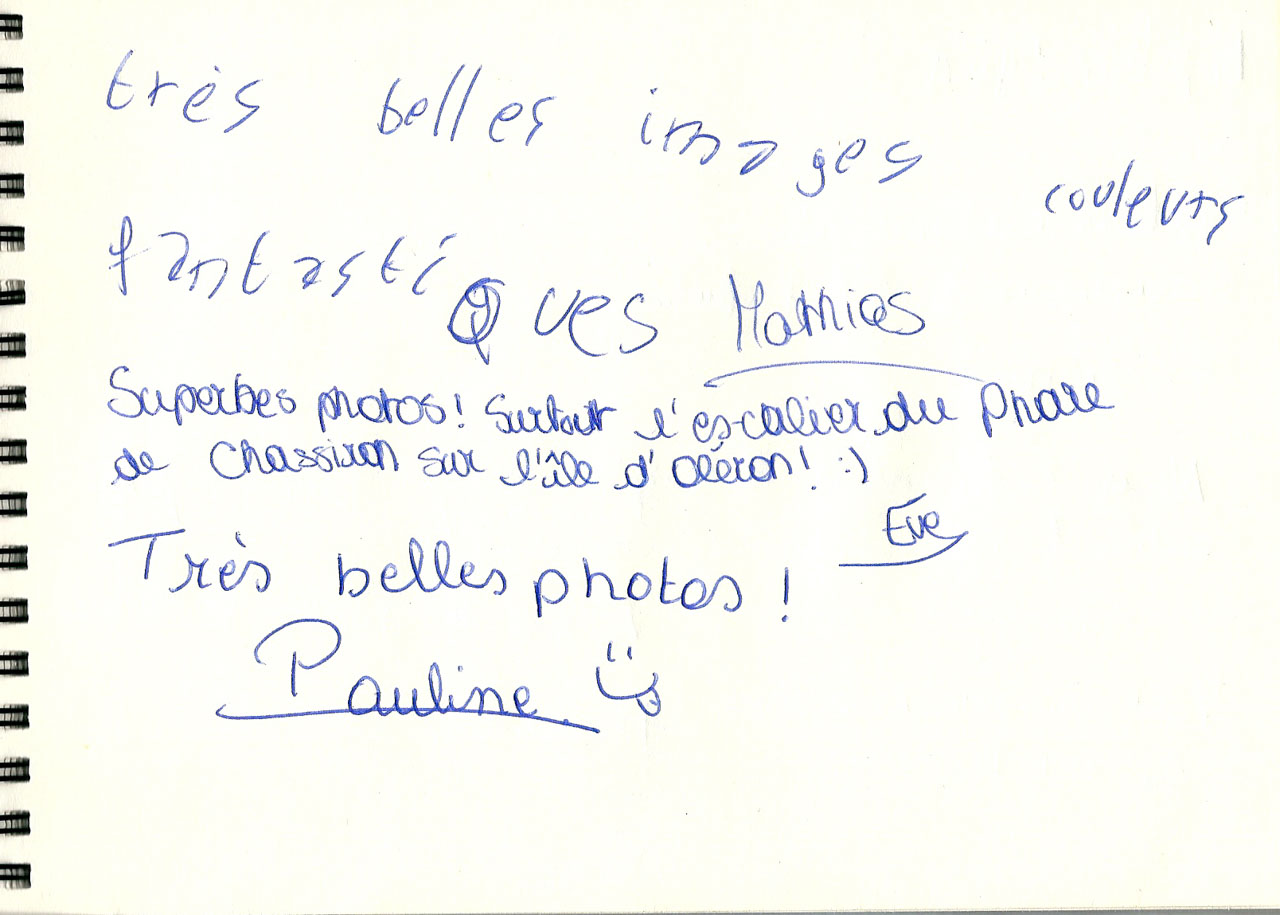 très belles images couleurs
fantastiQues Mathias
Superbes photos! Surtout l'escalier du Phare
de Chassiron sur l'île d'Oléron! :)
Eve
Très belles photos !
Pauline